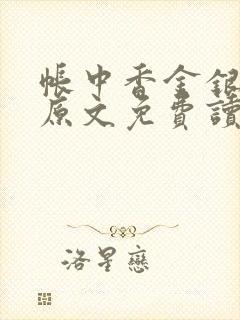 帳中香金銀
原文免費讀
洛星戀